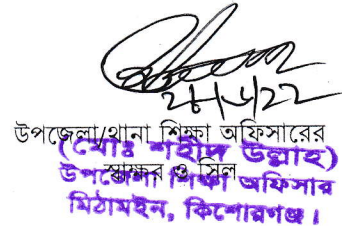 ২৮/৬/২২
উপজেলা/থানা শিক্ষা অফিসারের
স্বাক্ষর ও সিল
(মোঃ শহীদ উল্লাহ)
উপজেলা শিক্ষা অফিসার
মিঠামইন, কিশোরগঞ্জ।